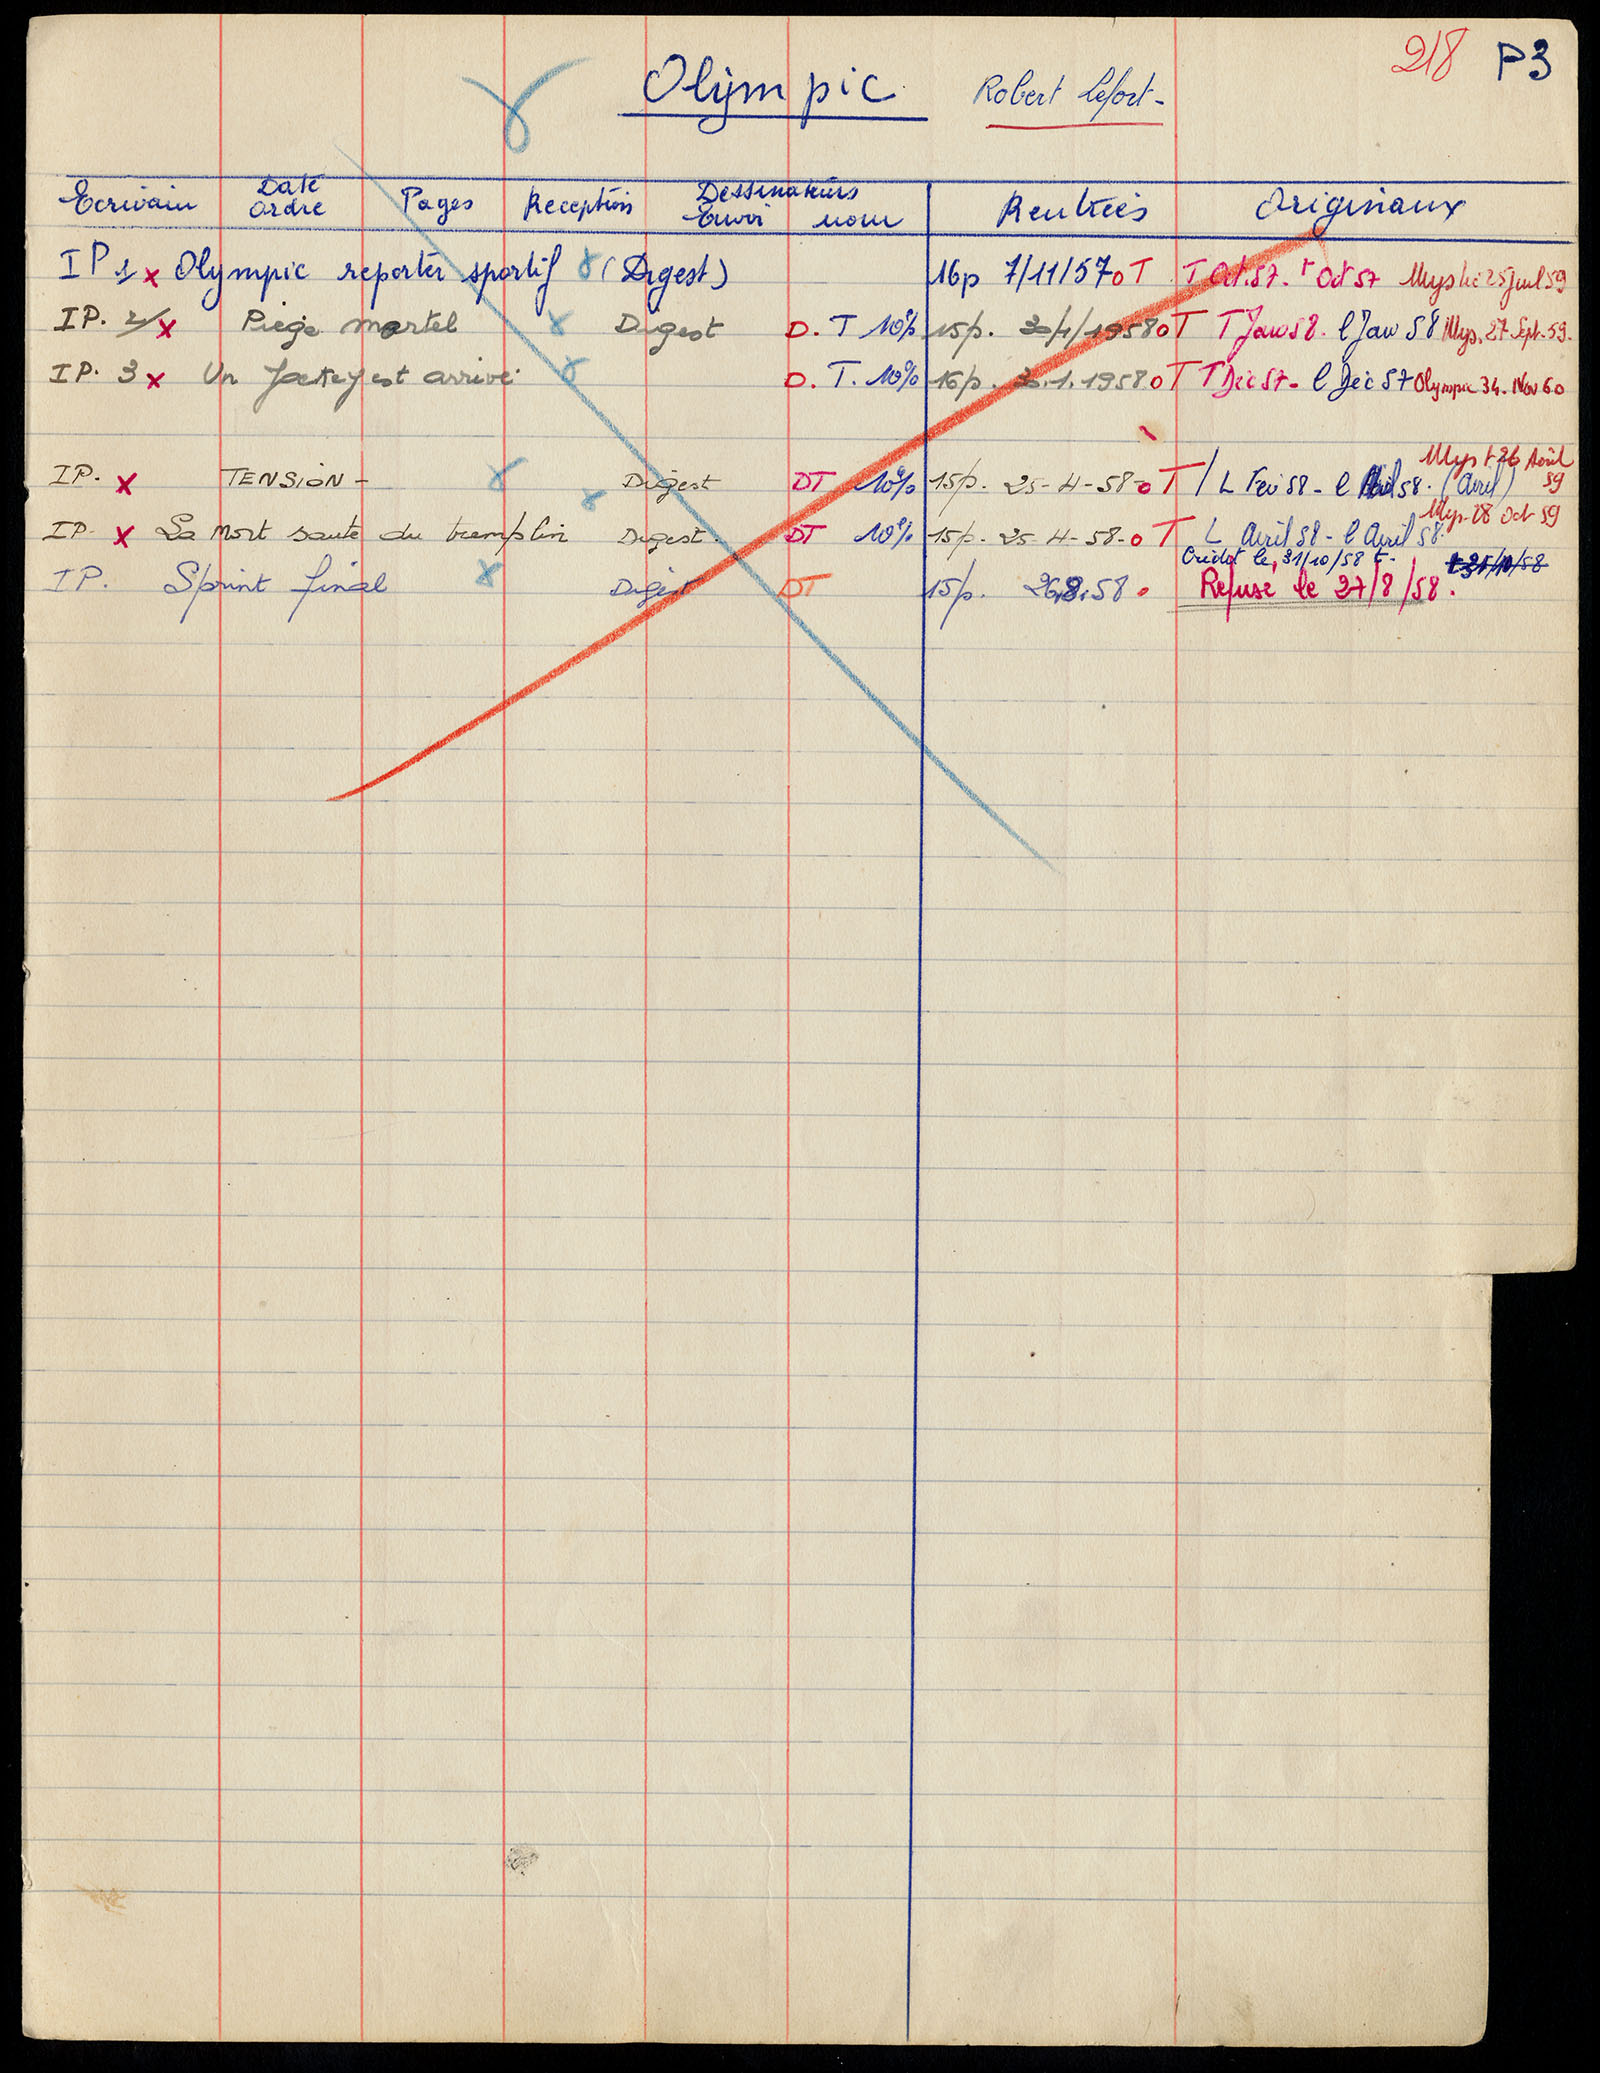 218 P3
Olympic Robert Lefort -
Ecrivain Date Ordre Pages Reception Dessinateurs Envoi nom Rentrées Originaux
IP 1 x Olympic reporter sportif (Digest) 16p 7/11/57 o T T Oct. 57. t Oct 57 Myst 25 Juil 59
IP. 2/ x Piège mortel Digest D. T 10% 15p. 30/1/1958 o T T Janv 58. l Janv 58 Mys. 27 Sept. 59.
IP. 3 x Un Jockey est arrivé D. T. 10% 16p. 30.1.1958. o T T Déc 57 - l Déc 57 Olympic 34. Nov 60
Myst 26 Août 59
IP. x TENSION - Digest DT 10% 15p. 25-4-58- o T / L Fev 58 - l Avril 58. (avril)
Mys. 28 Oct 59
IP. x La Mort saute du tremplin Digest. DT 10% 15p. 25-4-58- o T L Avril 58 - l Avril 58.
le, 31/10/58 t - t 31/10/58
IP. Sprint final Digest DT 15p. 26.8.58. Refusé le 27/8/58.